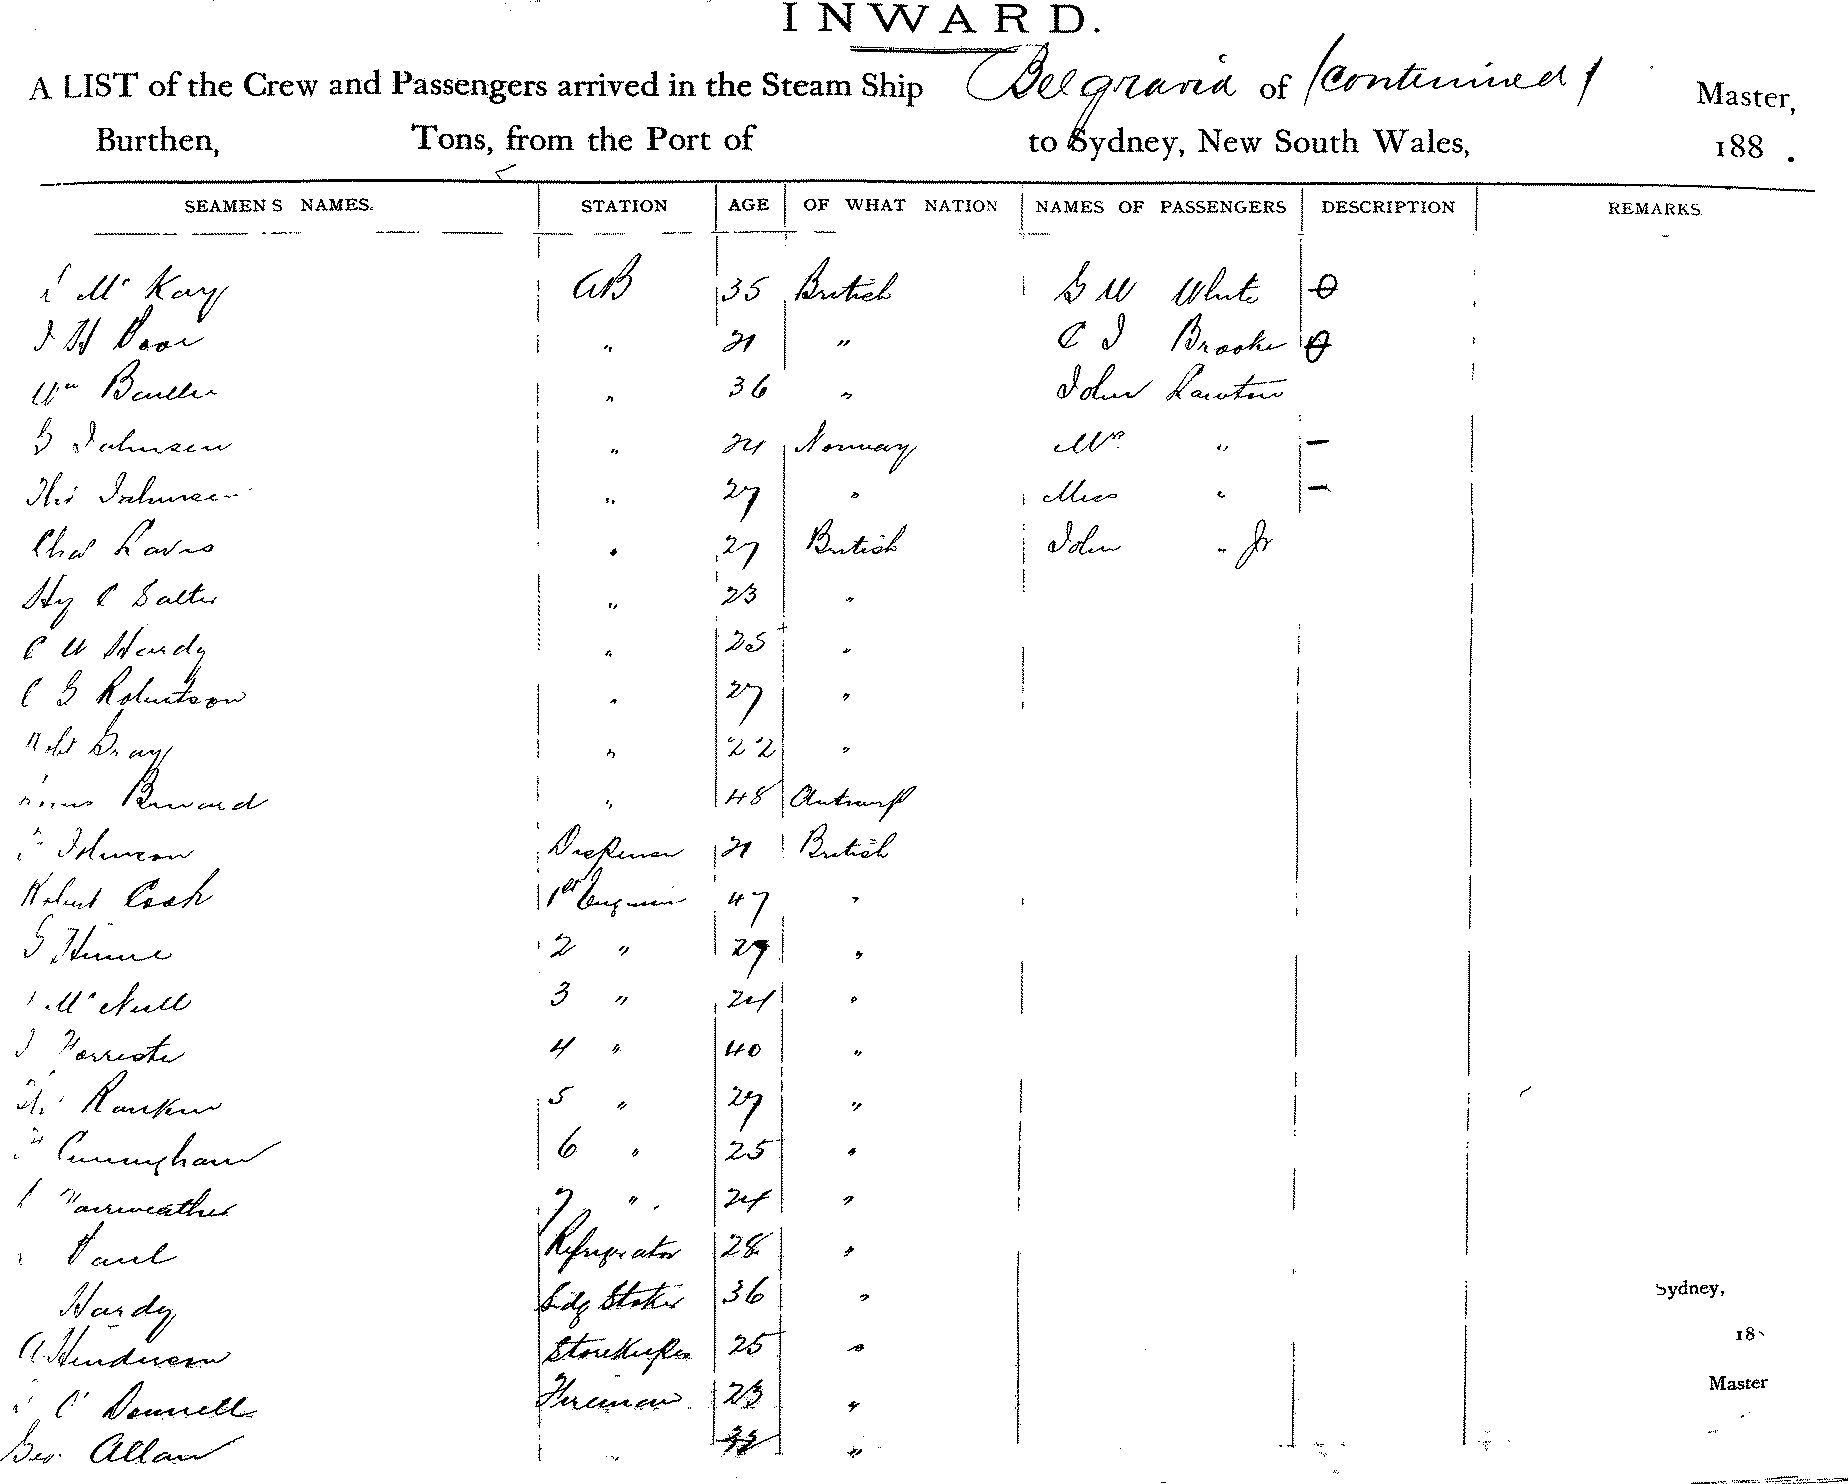 INWARD.
A LIST of the Crew and Passengers arrived in the Steam Ship Belgravia of (continued) Master,
Burthen, Tons, from the Port of to Sydney, New South Wales, 188 .
SEAMENS NAMES. STATION AGE OF WHAT NATION NAMES OF PASSENGERS DESCRIPTION REMARKS
Mc Kay AB 35 British G W White
J H " 21 " C J Brooke
Wm " 36 " John Lawton
G Johnsen " 24 Norway Mrs " —
Johnsen " 27 " Miss " —
Chas " 27 British John " Jr
Hy C Salter " 23 "
C W Hardy " 25 "
C G Robertson " 27 "
Robt Gray " 22 "
" 48 Antwerp
Johnson 21 British
Robert Cook 1st 47 "
G Hume 2 " 29 "
McNeill 3 " 24 "
J Forrester 4 " 40 "
Rankin 5 " 29 "
Cunningham 6 " 25 "
Fairweather 7 " 24 "
Paul Refrigerator 28 "
Hardy Stoker 36 "
Sydney,
A Henderson Storekeeper 25 "
18
O'Donnell Fireman 23 "
Master
Geo. Allan " "